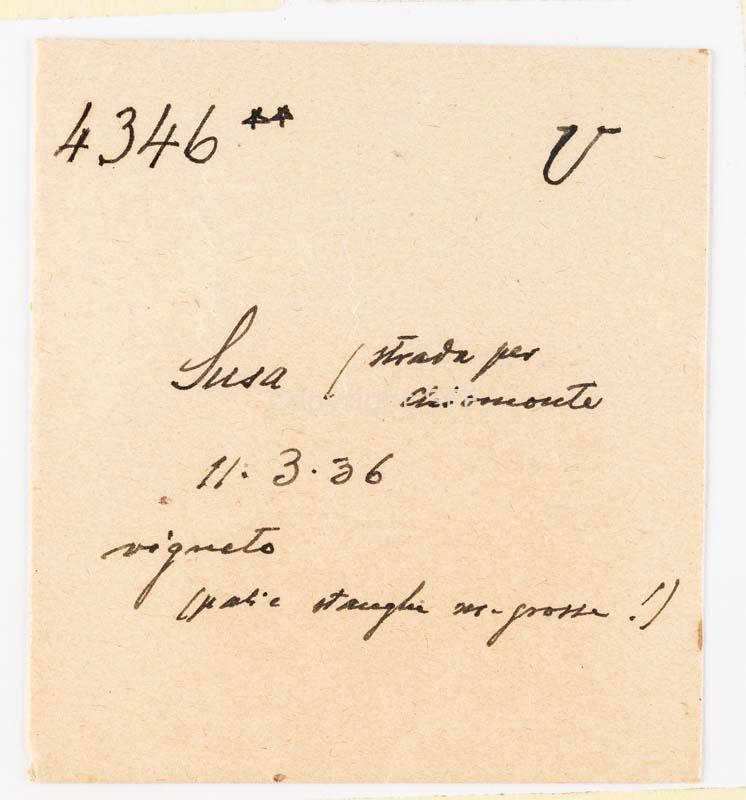 4346 ** V
Susa (strada per
Chiomonte
11.3.36
vigneto
(pali e stanghe grosse!)